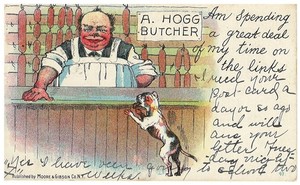 A. HOGG
BUTCHER
Am spending
a great deal
of my time on
the links
I rec'd your
Post-card a
day or so ago
and will
and your
letter
day night
Yes I have been
Published by Moore & Gibson Co. N.Y.